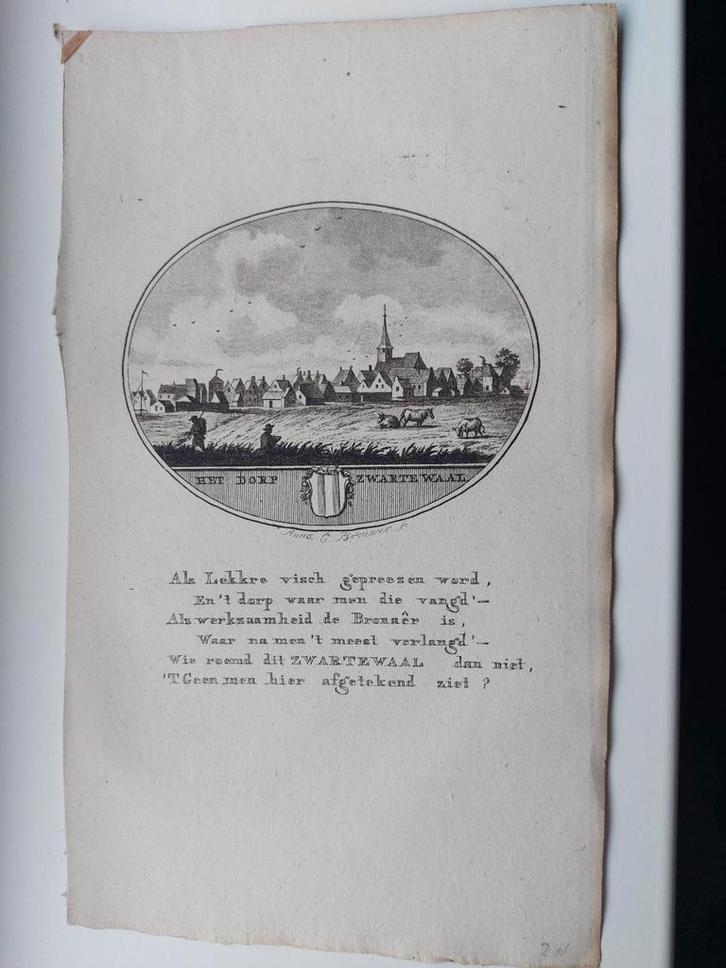 HET DORP ZWARTEWAAL.
Anna C. Brouwer f.
Als Lekkre visch gepreezen word,
En 't dorp waar men die vangd' —
Als werkzaamheid de Bronaêr is,
Waar na men 't meest verlangd' —
Wie roemd dit ZWARTEWAAL dan niet,
'T Geen men hier afgetekend ziet ?